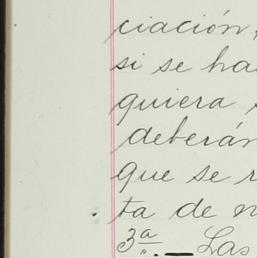 ciación,
si se ha
quiera
deberán
que se
ta de
3ª — Las